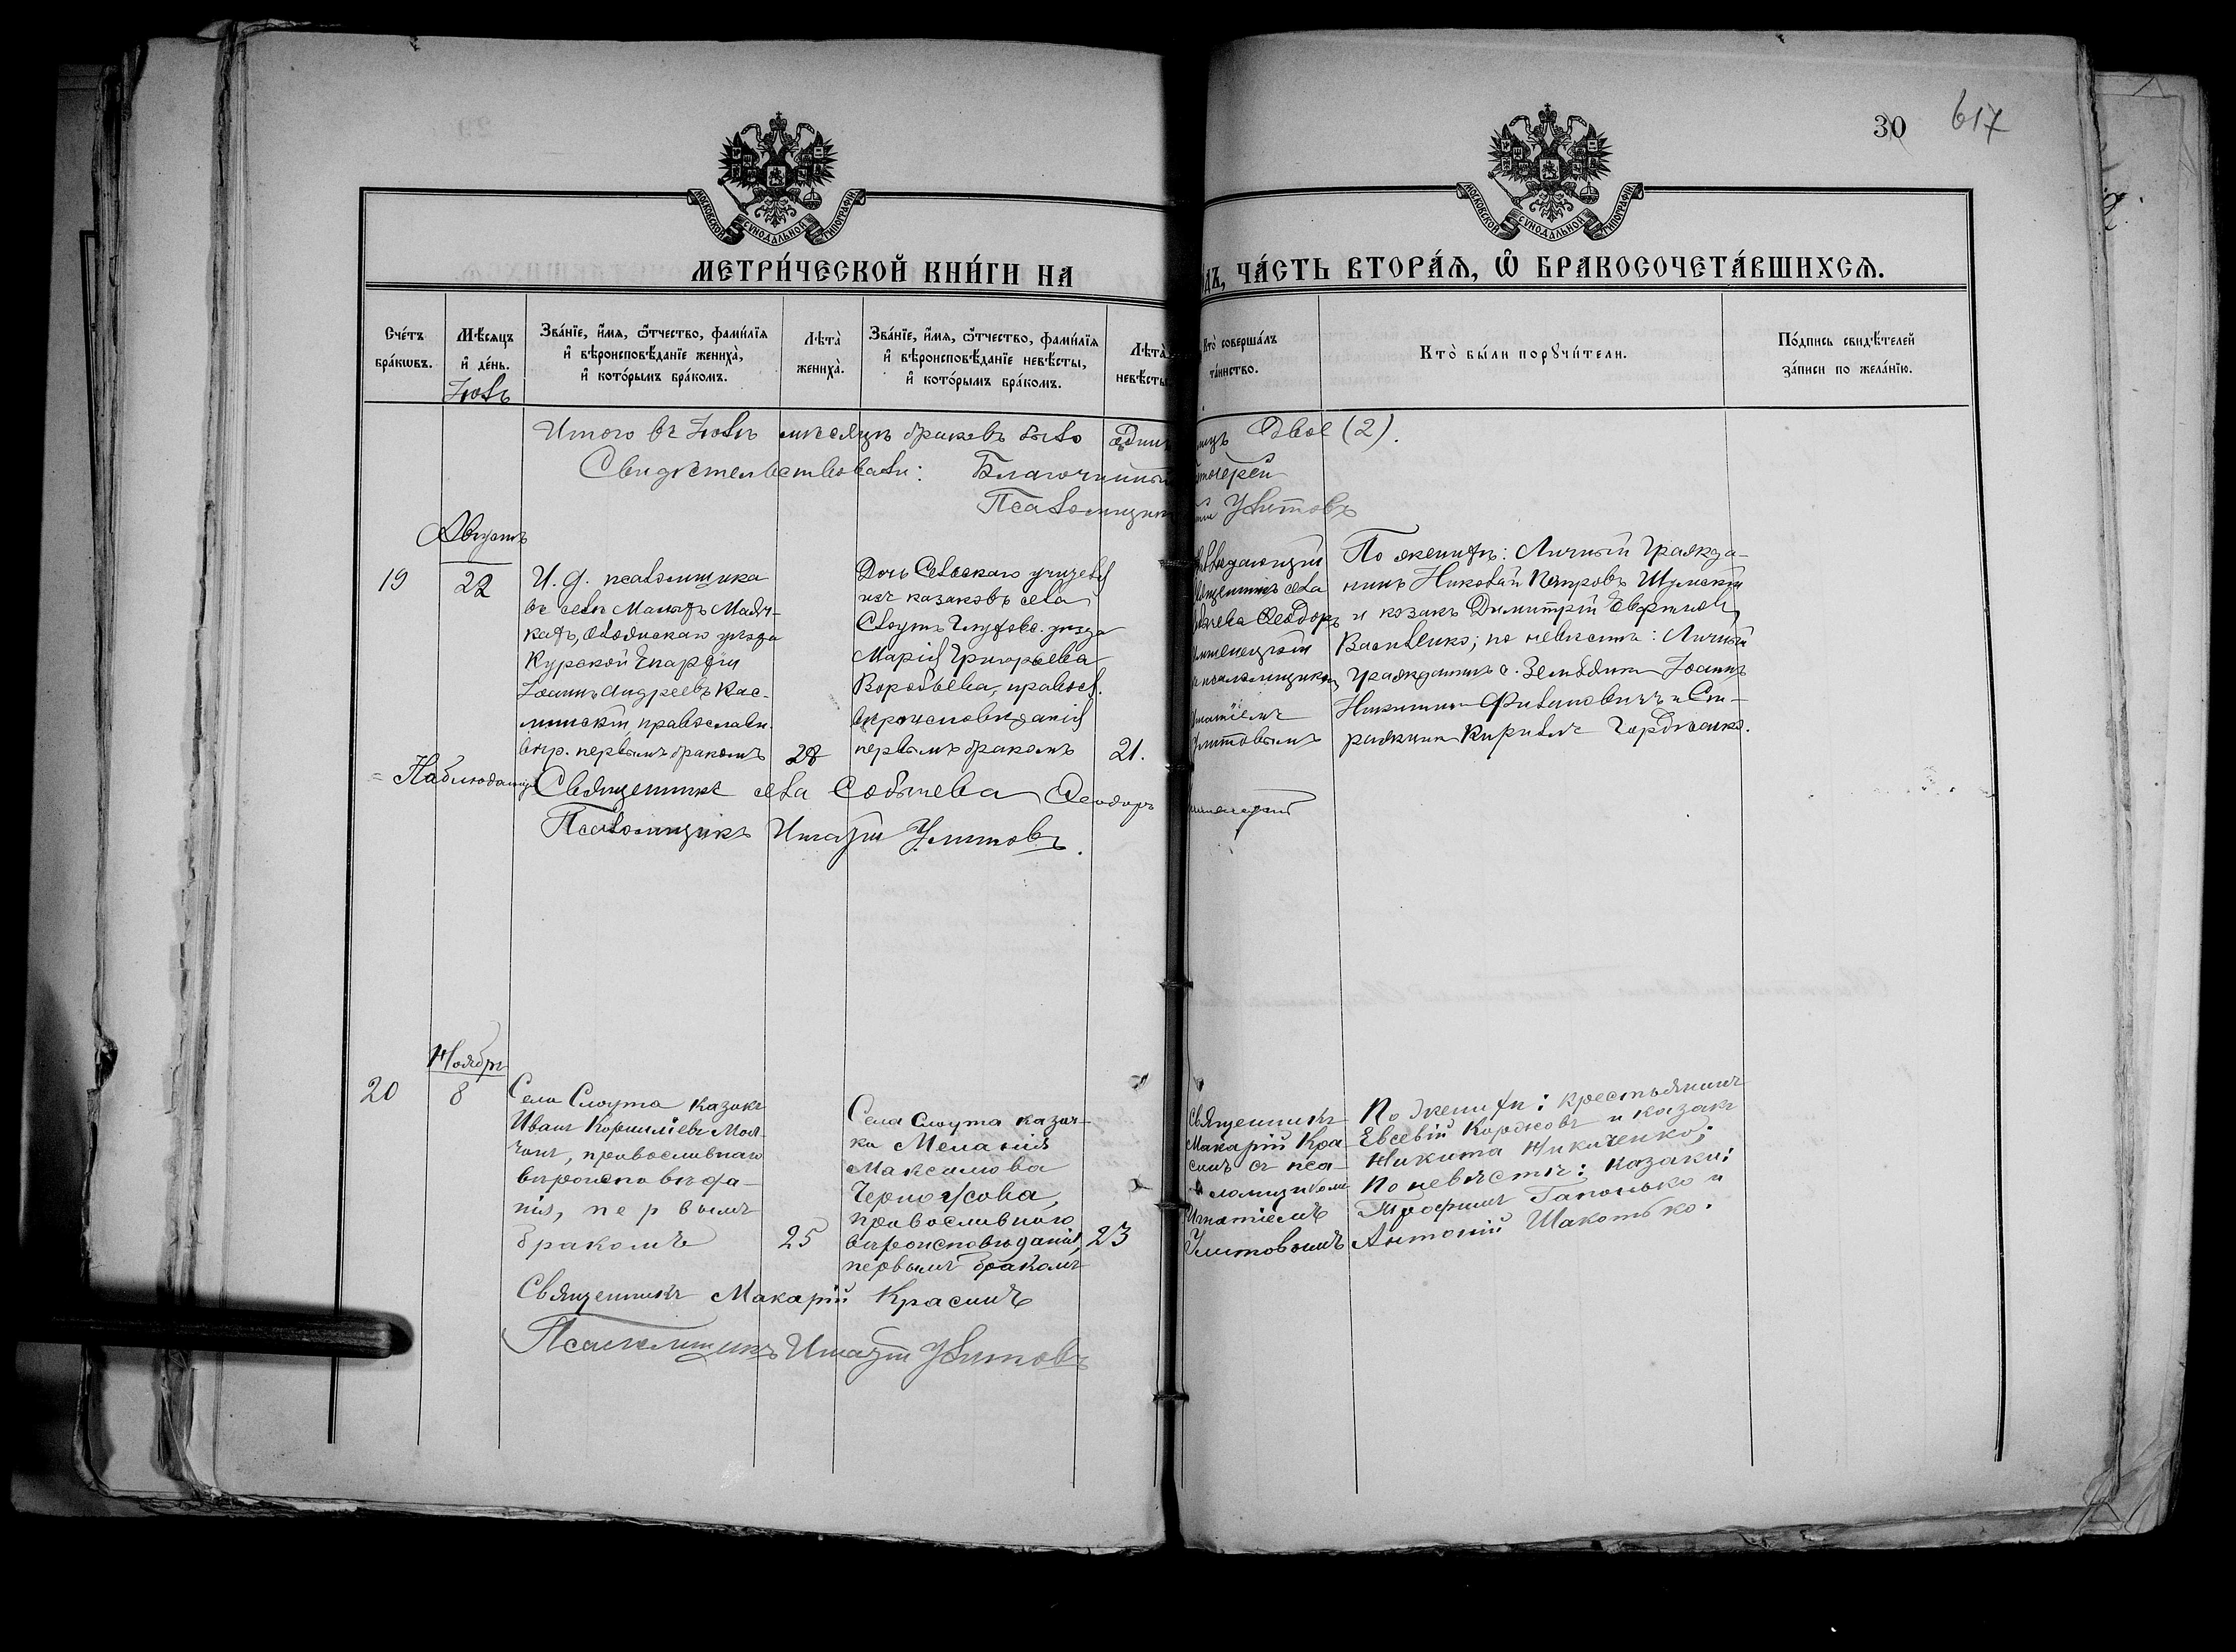 30 617
МОСКОВСКОЙ СѴНОДАЛЬНОЙ ТИПОГРАФІИ
МОСКОВСКОЙ СѴНОДАЛЬНОЙ ТИПОГРАФІИ
МЕТРИ́ЧЕСКОЙ КНИ́ГИ НА
ДЪ, ЧА́СТЬ ВТОРА́Ѧ, Ѽ БРАКОСОЧЕТА́ВШИХСѦ.
Сче́тъ
бра́кωвъ.
Мѣ́сяцъ
и҆ де́нь.
Зва́нїе, и҆́мя, ѻ҆́тчество, фами́лїя
и҆ вѣроисповѣ́данїе жениха̀,
и҆ кото́рымъ бра́комъ.
Лѣта̀
жениха̀.
Зва́нїе, и҆́мя, ѻ҆́тчество, фами́лїя
и҆ вѣроисповѣ́данїе невѣ́сты,
и҆ кото́рымъ бра́комъ.
Лѣта̀
невѣ́сты
Кто̀ соверша́лъ
та́инство.
Кто̀ бы́ли порꙋчи́тели.
По́дпись свидѣ́телей
за́писи по жела́нїю.
Іюль
Итого въ Іюлѣ мѣсяцѣ браковъ было Двое (2).
Свидѣтельствовали: Благочинный
Псаломщикъ Улитовъ
Августъ
19
22
И. д. псаломщика
въ селѣ Малыхъ Маяч-
кахъ, Обоянскаго уѣзда
Курской Епархіи
Іоаннъ Андреевъ Кас-
минскій, православн.
вѣр. первымъ бракомъ
28
Дочь Сельскаго учителя
изъ казаковъ села
Слоутъ Глуховс. уѣзда
Марія Григорьева
Воробьева, правосл.
вѣроисповѣданія
первымъ бракомъ
21.
села
Ѳеодоръ
псаломщикомъ
Игнатіемъ
Улитовымъ
По женихѣ: Личный Гражда-
нинъ Николай Петровъ Шумскій
и козакъ Димитрій
Василенко; по невѣстѣ: Личный
гражданинъ с. Іоаннъ
Никитинъ Филиповичъ и
Кириллъ
Наблюдающій Священникъ села Собычева Ѳеодоръ
Псаломщикъ Игнатій Улитовъ.
Ноябрь
20
8
Села Слоута казакъ
Иванъ Корниліевъ Мол-
чанъ, православнаго
вѣроисповѣда-
нія, первымъ
бракомъ
25
Села Слоута казач-
ка Меланія
Максимова
Черноусова,
православнаго
вѣроисповѣданія,
первымъ бракомъ
23
Священникъ
Макарій Кра-
синъ съ пса-
ломщикомъ
Игнатіемъ
Улитовымъ
По женихѣ: крестьянинъ
Евсевій Коржовъ и казакъ
Никита Никиченко;
по невѣстѣ: казаки:
Трофимъ Гапонько и
Антоній Шакотько.
Священникъ Макарій Красинъ
Псаломщикъ Игнатій Улитовъ